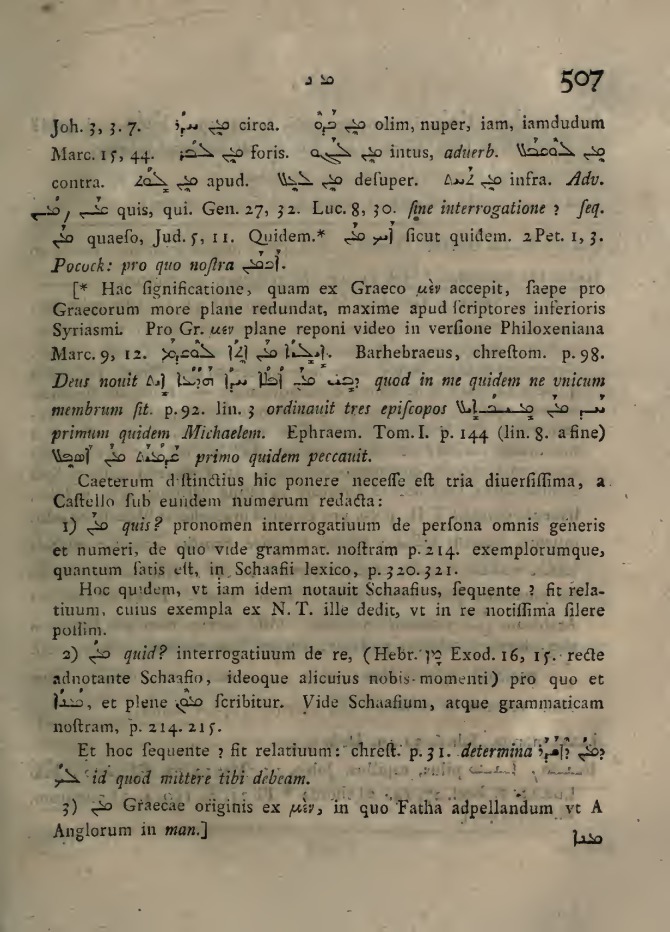 ܡܢ 507
Joh. 3, 3. 7. ܡܢ ܚܕܪ circa. ܡܢ ܟܕܘ olim, nuper, iam, iamdudum
Marc. 15, 44. ܡܢ ܠܒܪ foris. ܡܢ ܠܓܘ intus, aduerb. ܡܢ ܠܩܘܒܠ
contra. ܡܢ ܠܘܬ apud. ܡܢ ܠܥܠ deſuper. ܡܢ infra. Adv.
quis, qui. Gen. 27, 32. Luc. 8, 30. ſine interrogatione ? ſeq.
ܡܢ quaeſo, Jud. 5, 11. Quidem.* ܐܝܟ ܡܢ ſicut quidem. 2 Pet. 1, 3.
Pocock: pro quo noſtra
[* Hac ſignificatione, quam ex Graeco μὲν accepit, ſaepe pro
Graecorum more plane redundat, maxime apud ſcriptores inferioris
Syriasmi. Pro Gr. μεν plane reponi video in verſione Philoxeniana
Marc. 9, 12. ܐܠܝܐ ܡܢ ܐܬܐ ܠܘܩܕܡ. Barhebraeus, chreſtom. p. 98.
Deus nouit quod in me quidem ne vnicum
membrum ſit. p. 92. lin. 3 ordinauit tres epiſcopos
primum quidem Michaelem. Ephraem. Tom. I. p. 144 (lin. 8. a fine)
ܩܕܡܝܬ ܡܢ ܐܣܟܠ primo quidem peccauit.
Caeterum d ſtinctius hic ponere neceſſe eſt tria diuerſiſſima, a
Caſtello ſub eundem numerum redacta:
1) ܡܢ quis? pronomen interrogatiuum de perſona omnis generis
et numeri, de quo vide grammat. noſtram p. 214. exemplorumque,
quantum ſatis eſt, in Schaafii lexico, p. 320. 321.
Hoc quidem, vt iam idem notauit Schaafius, ſequente ? fit rela-
tiuum, cuius exempla ex N. T. ille dedit, vt in re notiſſima ſilere
poſſim.
2) ܡܢ quid? interrogatiuum de re, (Hebr. מן Exod. 16, 15. recte
adnotante Schaafio, ideoque alicuius nobis momenti) pro quo et
ܡܢܐ, et plene ܡܘܢ ſcribitur. Vide Schaafium, atque grammaticam
noſtram, p. 214. 215.
Et hoc ſequente ? fit relatiuum: chreſt. p. 31. determina
ܠܟ id quod mittere tibi debeam.
3) ܡܢ Graecae originis ex μὲν, in quo Fatha adpellandum vt A
Anglorum in man.]
ܡܢܐ